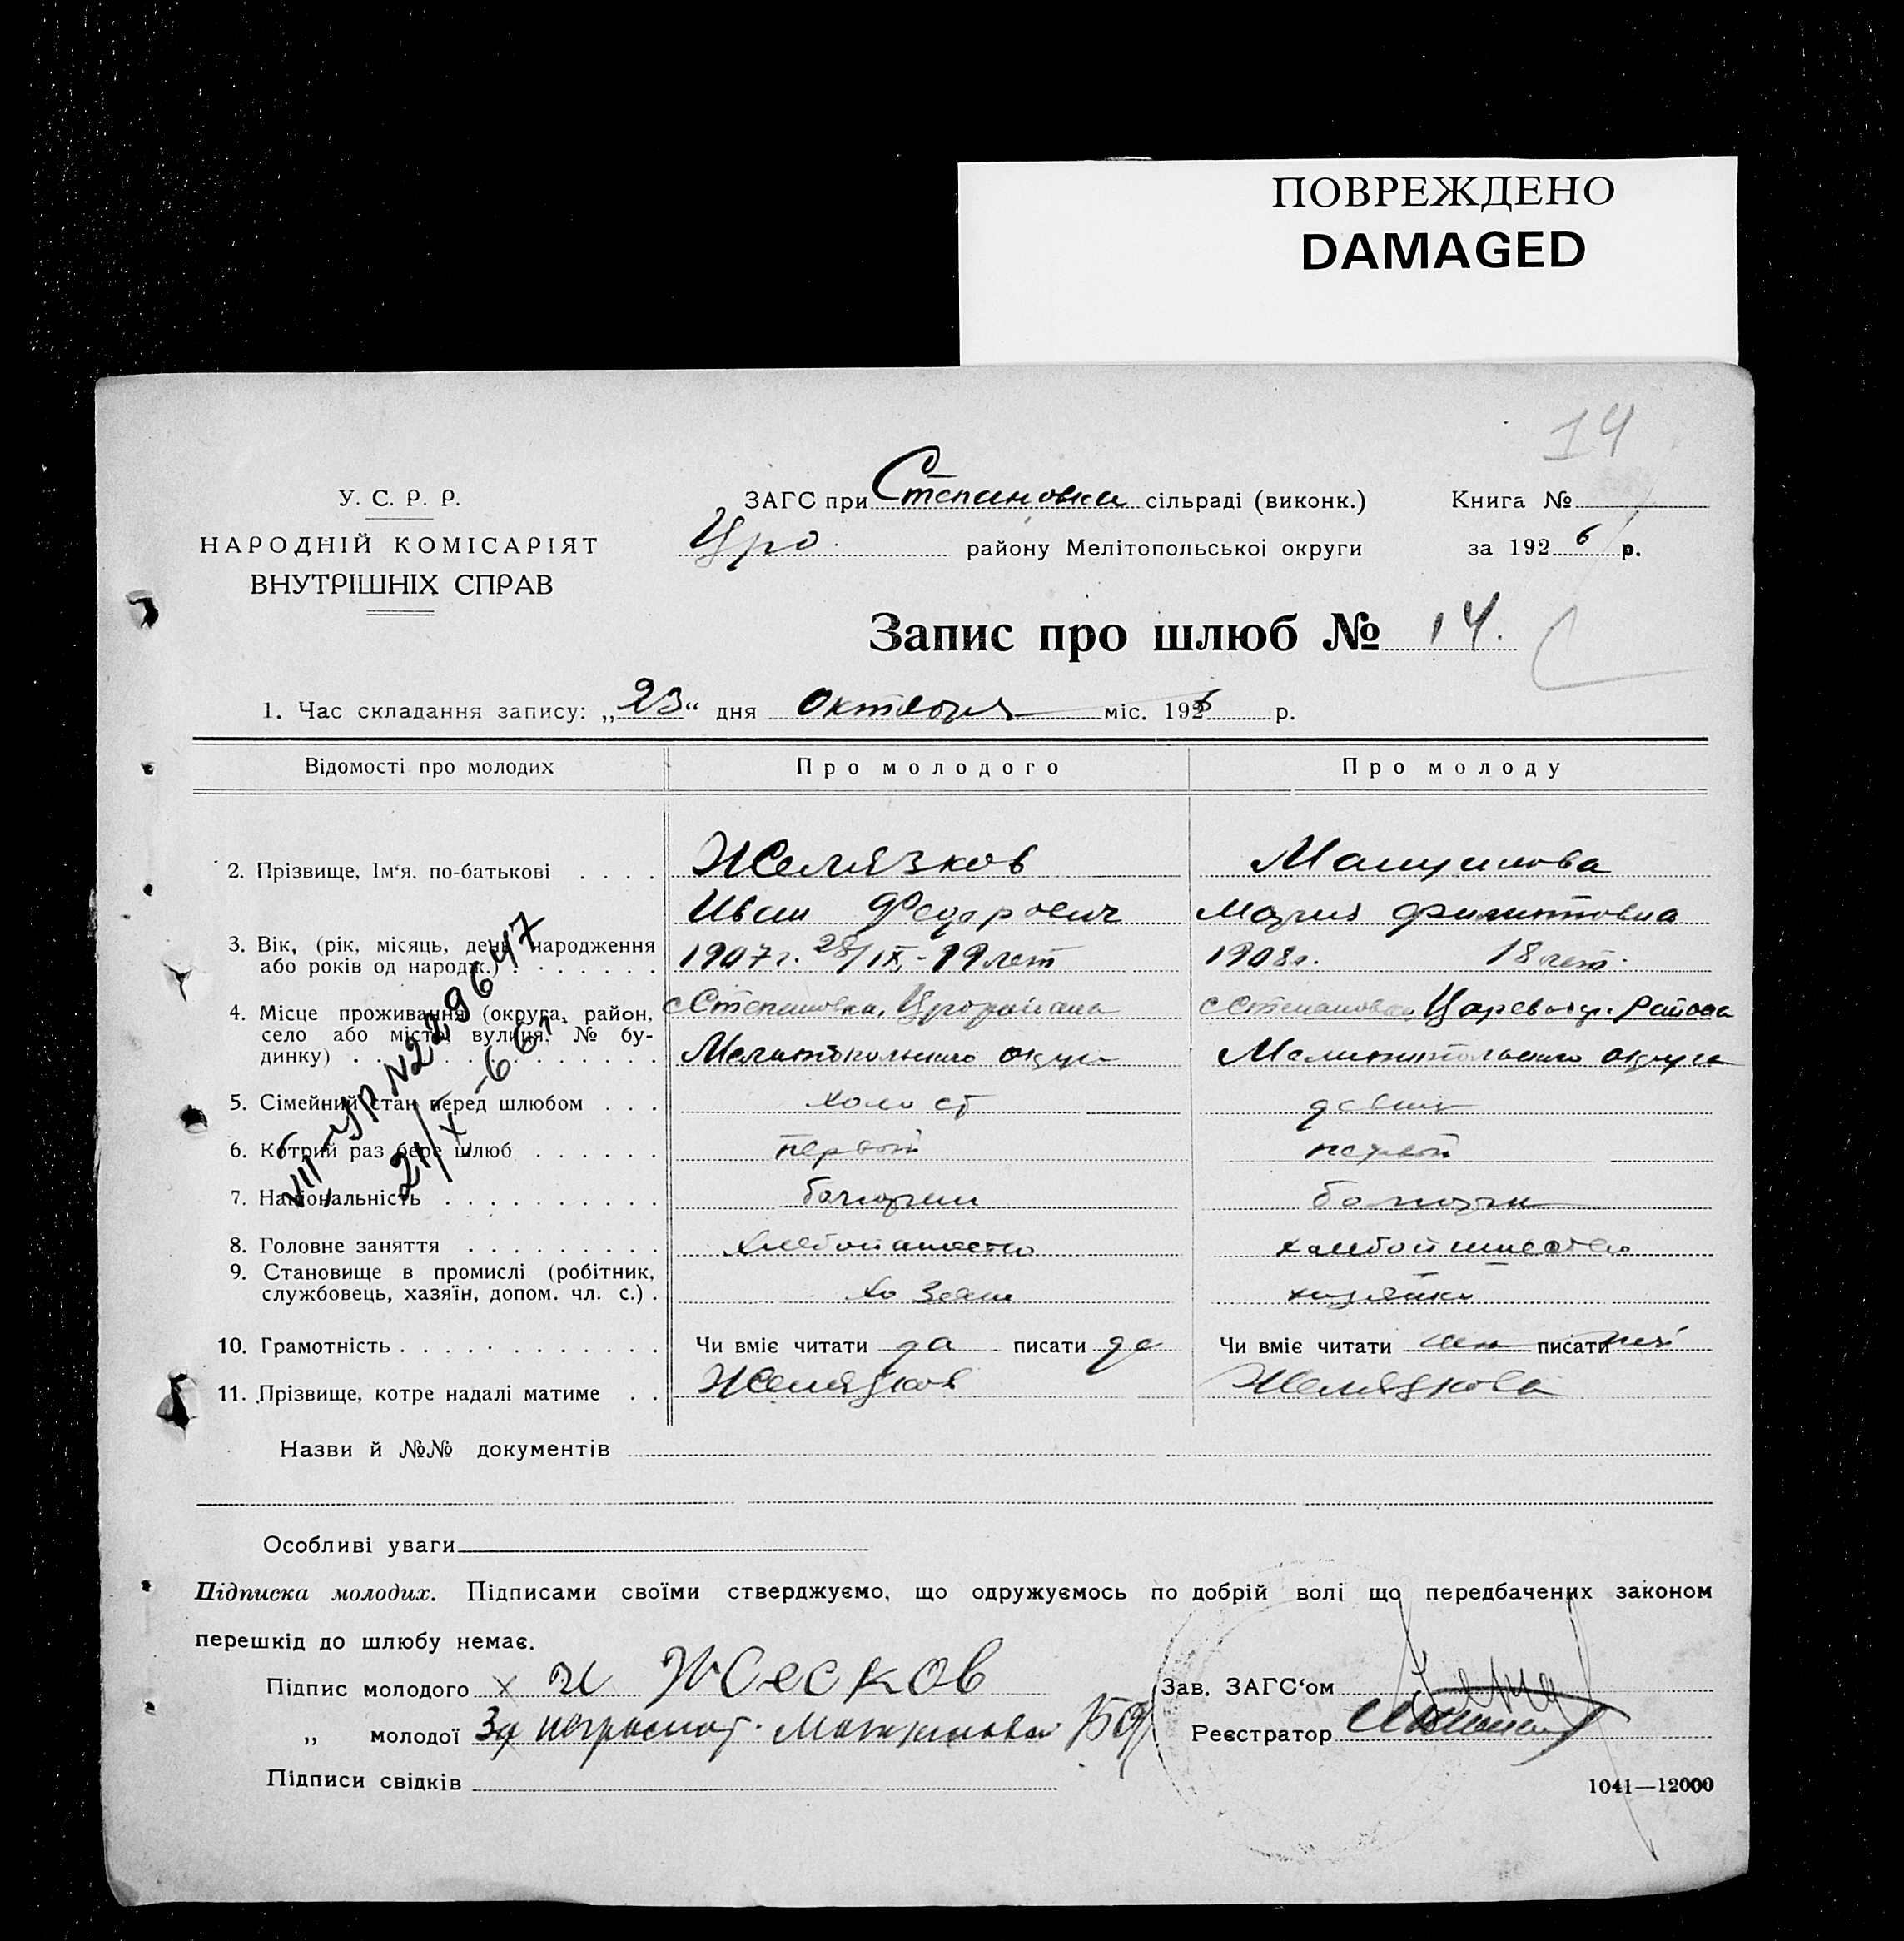 ПОВРЕЖДЕНО
DAMAGED
14
У. С. Р. Р.
НАРОДНІЙ КОМІСАРІЯТ
ВНУТРІШНІХ СПРАВ
ЗАГС при Степановка сільраді (виконк.) Книга №
Цро. району Мелітопольської округи за 1926 р.
Запис про шлюб № 14.
1. Час складання запису: „23“ дня октября міс. 1926 р.
Відомості про молодих Про молодого Про молоду
2. Прізвище, Ім‘я, по-батькові . . . . Желязков
Иван Федорович Мария Филиповна
3. Вік, (рік, місяць, день народження
або років од народж.) . . . . . . . 1907 г. 28/IX - 19 лет 1908 г. 18 лет.
4. Місце проживання (округа, район,
село або місто, вулиця, № бу-
динку) . . . . . . . . . . . . . .
с Степановка, Црорайона с Степановка Цареводр. Района
Мелитопольского округа Мелитопольского округа
5. Сімейний стан перед шлюбом . . . холост девица
6. Котрий раз бере шлюб . . . . . . первый первый
7. Національність . . . . . . . . . . болгарин болгарка
8. Головне заняття . . . . . . . . . хлебопашество хлебопашество
9. Становище в промислі (робітник,
службовець, хазяїн, допом. чл. с.) . хозяин хозяйка
10. Грамотність . . . . . . . . . . . . Чи вміє читати да писати да Чи вміє читати писати
11. Прізвище, котре надалі матиме . . Желязков Желязкова
VIII-УР №229647
21/X-66 г.
Назви й №№ документів
Особливі уваги
Підписка молодих. Підписами своїми стверджуємо, що одружуємось по добрій волі що передбачених законом
перешкід до шлюбу немає.
Підпис молодого х И Жесков Зав. ЗАГС‘ом
„ молодої За неграмот. Реєстратор
Підписи свідків
1041—12000